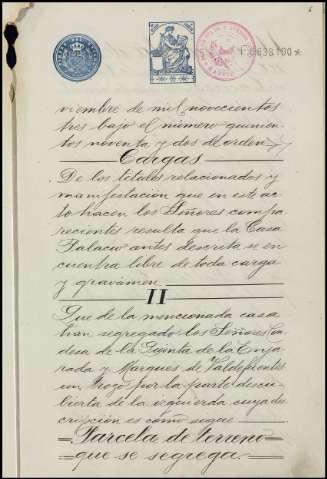 viembre de mil novecientos
tres bajo el número quinien
tos noventa y dos de orden
Cargas
De los títulos relacionados y
manifestación que en este ac
to hacen los Señores compa
recientes resulta que la Casa
Palacio antes descrita se en
cuentra libre de toda carga
y gravámen
II
Que de la mencionada casa
han segregado los Señores Con
desa de la Quinta de la Enja
rada y Marques de Valdefuentes
un trozo por la parte descu
bierta de la izquierda cuya des
cripción es como sigue
Parcela de terreno
que se segrega.